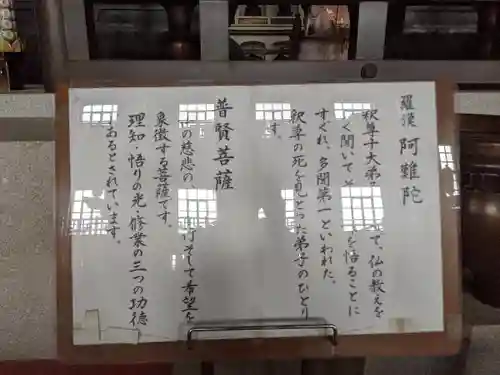 羅漢 阿難陀
釈尊十大弟 て、仏の教えを
く聞いて を悟ることに
すぐれ、多聞第一といわれた。
釈尊の死を見とった弟子のひとり
です。
普賢菩薩
の慈悲の、 行そして希望を
象徴する菩薩です。
理知・悟りの光・修業の三つの功徳
あるとされています。